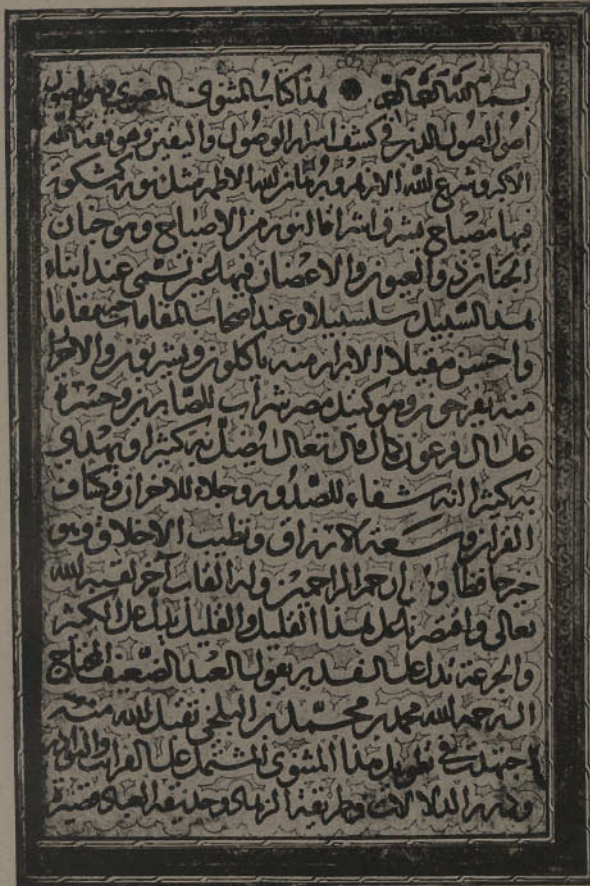 بسم الله الرحمن الرحيم هذا كتاب المثنوى المعنوى وهو اصول
اصول اصول الدين فى كشف اسرار الوصول واليقين وهو فقه الله
الاكبر وشرع الله الازهر وبرهان الله الاظهر مثل نوره كمشكوة
فيها مصباح يشرق اشراقا انور من الاصباح وهو جنان
الجنان ذو العيون والاغصان فيها عين تسمى عند ابناء
هذا السبيل سلسبيلا وعند اصحاب المقامات خير مقاما
واحسن مقيلا الابرار منه ياكلون ويشربون والاحرار
منه يفرحون وهو كنيل مصر شراب للصابرين وحسرة
على ال فرعون كما قال تعالى يضل به كثيرا ويهدى
به كثيرا انه شفاء للصدور وجلاء للاحزان وكشاف
القران وسعة الارزاق وتطييب الاخلاق وهو
خير حافظا و ارحم الراحمين وله القاب آخر لقبه الله
تعالى واقتصرنا على هذا القليل والقليل يدل على الكثير
والجرعة تدل على الغدير يقول العبد الضعيف المحتاج
الى رحمة الله محمد بن محمد البلخى تقبل الله منه
اجتهدت فى تطويل هذا المثنوى المشتمل على الغرائب والنوادر
ودرر الدلالات وطريقة الزهاد وحديقة العباد قصيرة